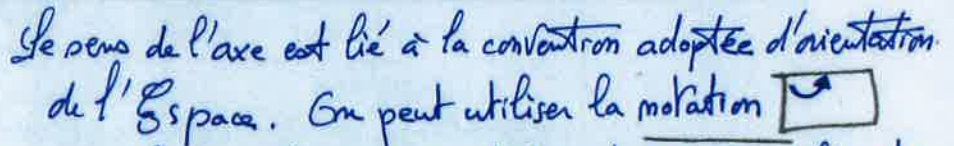 Le sens de l'axe est lié à la convention adoptée d'orientation
de l'Espace. On peut utiliser la notation